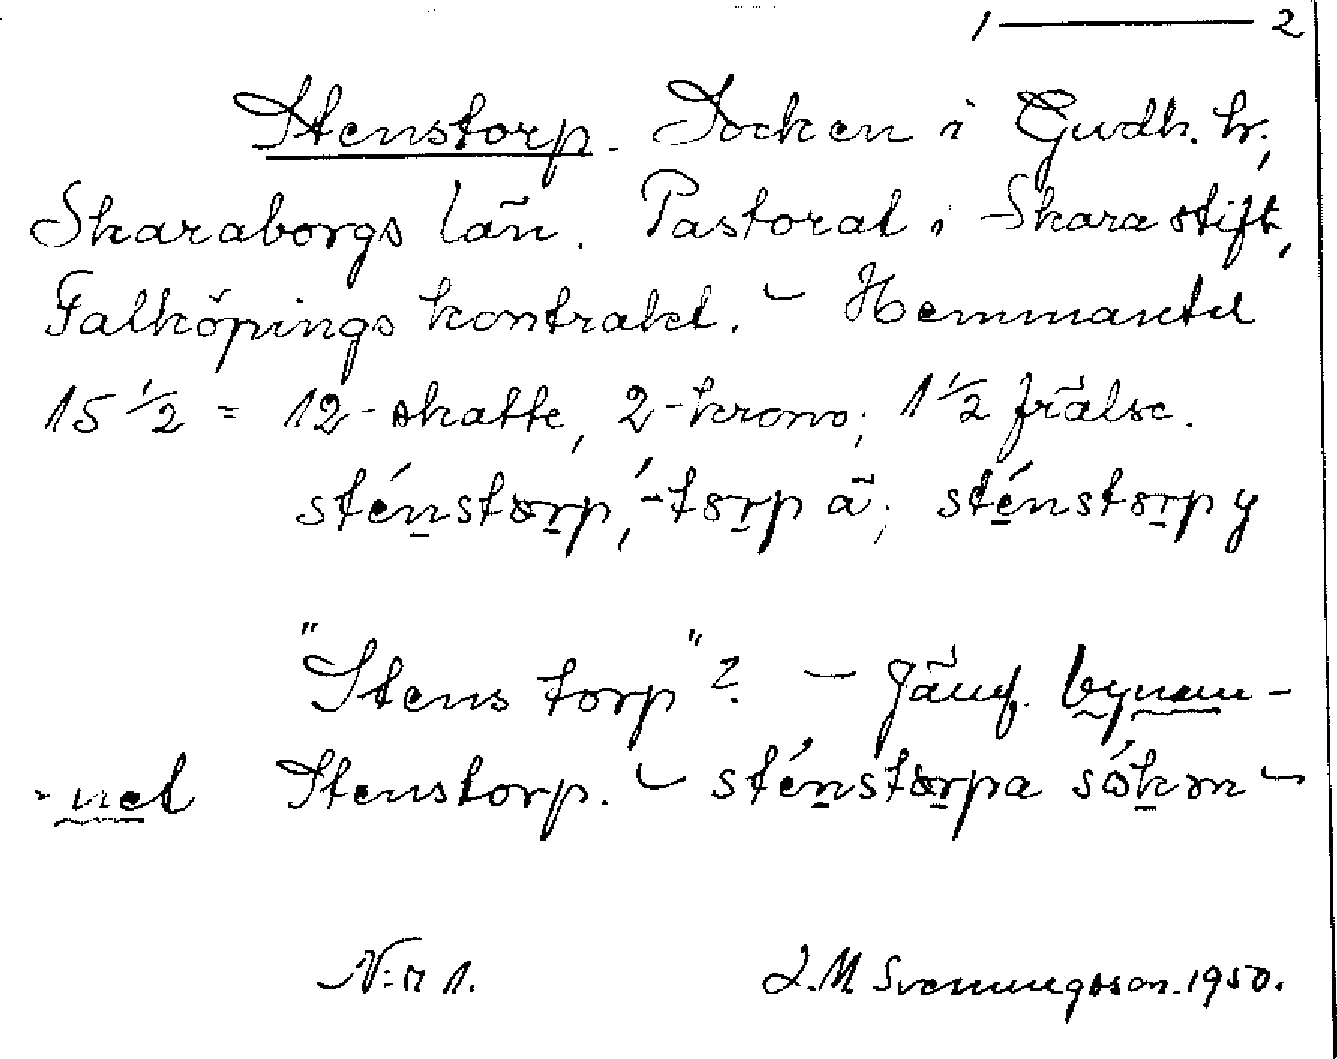 1 — 2
Stenstorp. Socken i Gudh. hr.,
Skaraborgs län. Pastorat i Skara stift,
Falköpings kontrakt. – Hemmantal
15 1/2 = 12 - skatte, 2 - krono, 1 1/2 frälse.
sténstorp, ́-torp ä; sténstorp y
"Stens torp"? – Jämf. bynam-
-net Stenstorp. – sténstorpa sókon –
N:o 1. J.M. Svenningsson. 1950.